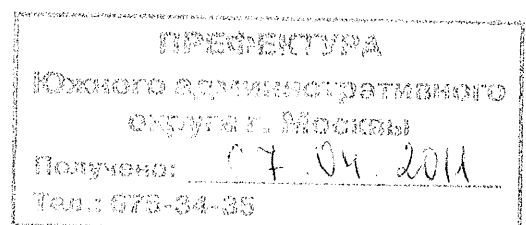 ПРЕФЕКТУРА
Южного административного
округа г. Москвы
Получено: 07.04.2011
Тел.: 675-34-35